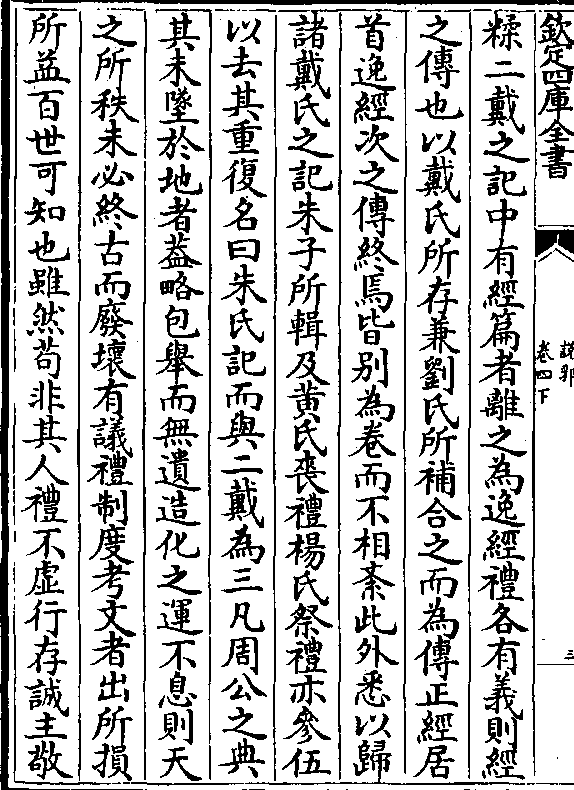 欽定四庫全書
說郛
卷四下
三
糅二戴之記中有經篇者離之為逸經禮各有義則經
之傳也以戴氏所存兼劉氏所補合之而為傳正經居
首逸經次之傳終焉皆别為卷而不相紊此外悉以歸
諸戴氏之記朱子所輯及黄氏喪禮楊氏祭禮亦參伍
以去其重復名曰朱氏記而與二戴為三凡周公之典
其未墜於地者葢略包舉而無遺造化之運不息則天
之所秩未必終古而廢壞有議禮制度考文者出所損
所益百世可知也雖然苟非其人禮不虚行存誠主敬